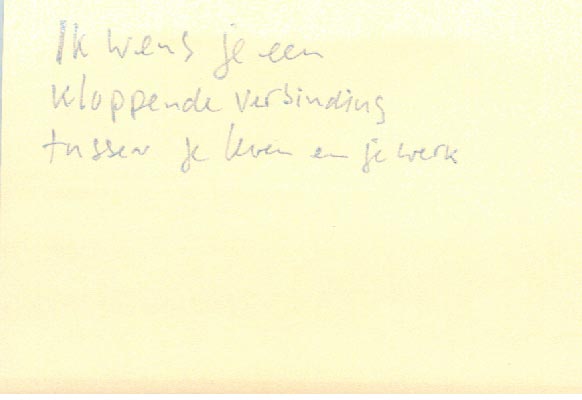 Ik wens je een
kloppende verbinding
tussen je leven en je werk